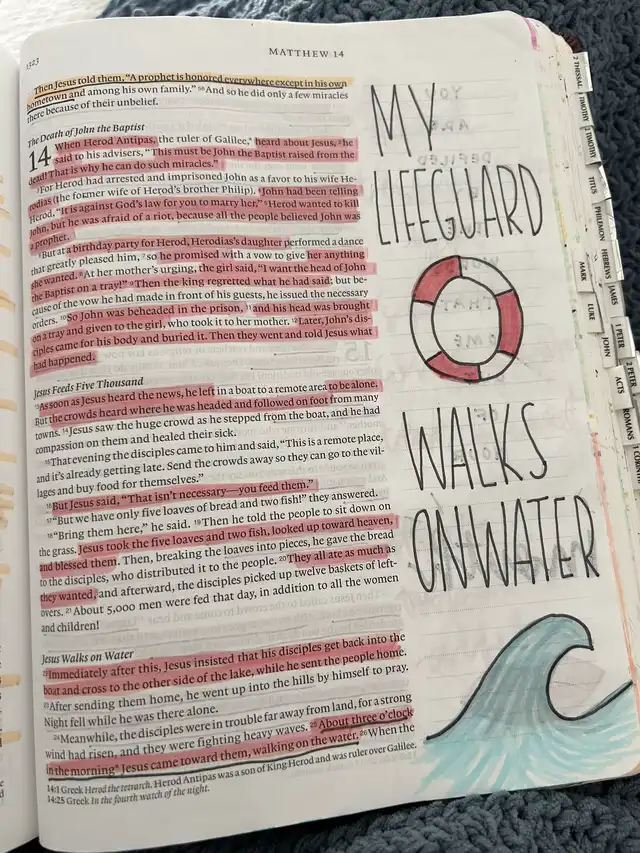 1323
MATTHEW 14
Then Jesus told them, “A prophet is honored everywhere except in his own
hometown and among his own family.” 58And so he did only a few miracles
there because of their unbelief.
The Death of John the Baptist
14 When Herod Antipas, the ruler of Galilee,* heard about Jesus, 2he
said to his advisers, “This must be John the Baptist raised from the
dead! That is why he can do such miracles.”
3For Herod had arrested and imprisoned John as a favor to his wife He-
rodias (the former wife of Herod’s brother Philip). 4John had been telling
Herod, “It is against God’s law for you to marry her.” 5Herod wanted to kill
John, but he was afraid of a riot, because all the people believed John was
a prophet.
6But at a birthday party for Herod, Herodias’s daughter performed a dance
that greatly pleased him, 7so he promised with a vow to give her anything
she wanted. 8At her mother’s urging, the girl said, “I want the head of John
the Baptist on a tray!” 9Then the king regretted what he had said; but be-
cause of the vow he had made in front of his guests, he issued the necessary
orders. 10So John was beheaded in the prison, 11and his head was brought
on a tray and given to the girl, who took it to her mother. 12Later, John’s dis-
ciples came for his body and buried it. Then they went and told Jesus what
had happened.
Jesus Feeds Five Thousand
13As soon as Jesus heard the news, he left in a boat to a remote area to be alone.
But the crowds heard where he was headed and followed on foot from many
towns. 14Jesus saw the huge crowd as he stepped from the boat, and he had
compassion on them and healed their sick.
15That evening the disciples came to him and said, “This is a remote place,
and it’s already getting late. Send the crowds away so they can go to the vil-
lages and buy food for themselves.”
16But Jesus said, “That isn’t necessary—you feed them.”
17“But we have only five loaves of bread and two fish!” they answered.
18“Bring them here,” he said. 19Then he told the people to sit down on
the grass. Jesus took the five loaves and two fish, looked up toward heaven,
and blessed them. Then, breaking the loaves into pieces, he gave the bread
to the disciples, who distributed it to the people. 20They all ate as much as
they wanted, and afterward, the disciples picked up twelve baskets of left-
overs. 21About 5,000 men were fed that day, in addition to all the women
and children!
Jesus Walks on Water
22Immediately after this, Jesus insisted that his disciples get back into the
boat and cross to the other side of the lake, while he sent the people home.
23After sending them home, he went up into the hills by himself to pray.
Night fell while he was there alone.
24Meanwhile, the disciples were in trouble far away from land, for a strong
wind had risen, and they were fighting heavy waves. 25About three o’clock
in the morning* Jesus came toward them, walking on the water. 26When the
14:1 Greek Herod the tetrarch. Herod Antipas was a son of King Herod and was ruler over Galilee.
14:25 Greek In the fourth watch of the night.
MY
LIFEGUARD
WALKS
ON WATER
2 THESSAL
1 TIMOTHY
2 TIMOTHY
TITUS
PHILEMON
HEBREWS
JAMES
1 PETER
2 PETER
MARK
LUKE
JOHN
ACTS
ROMANS